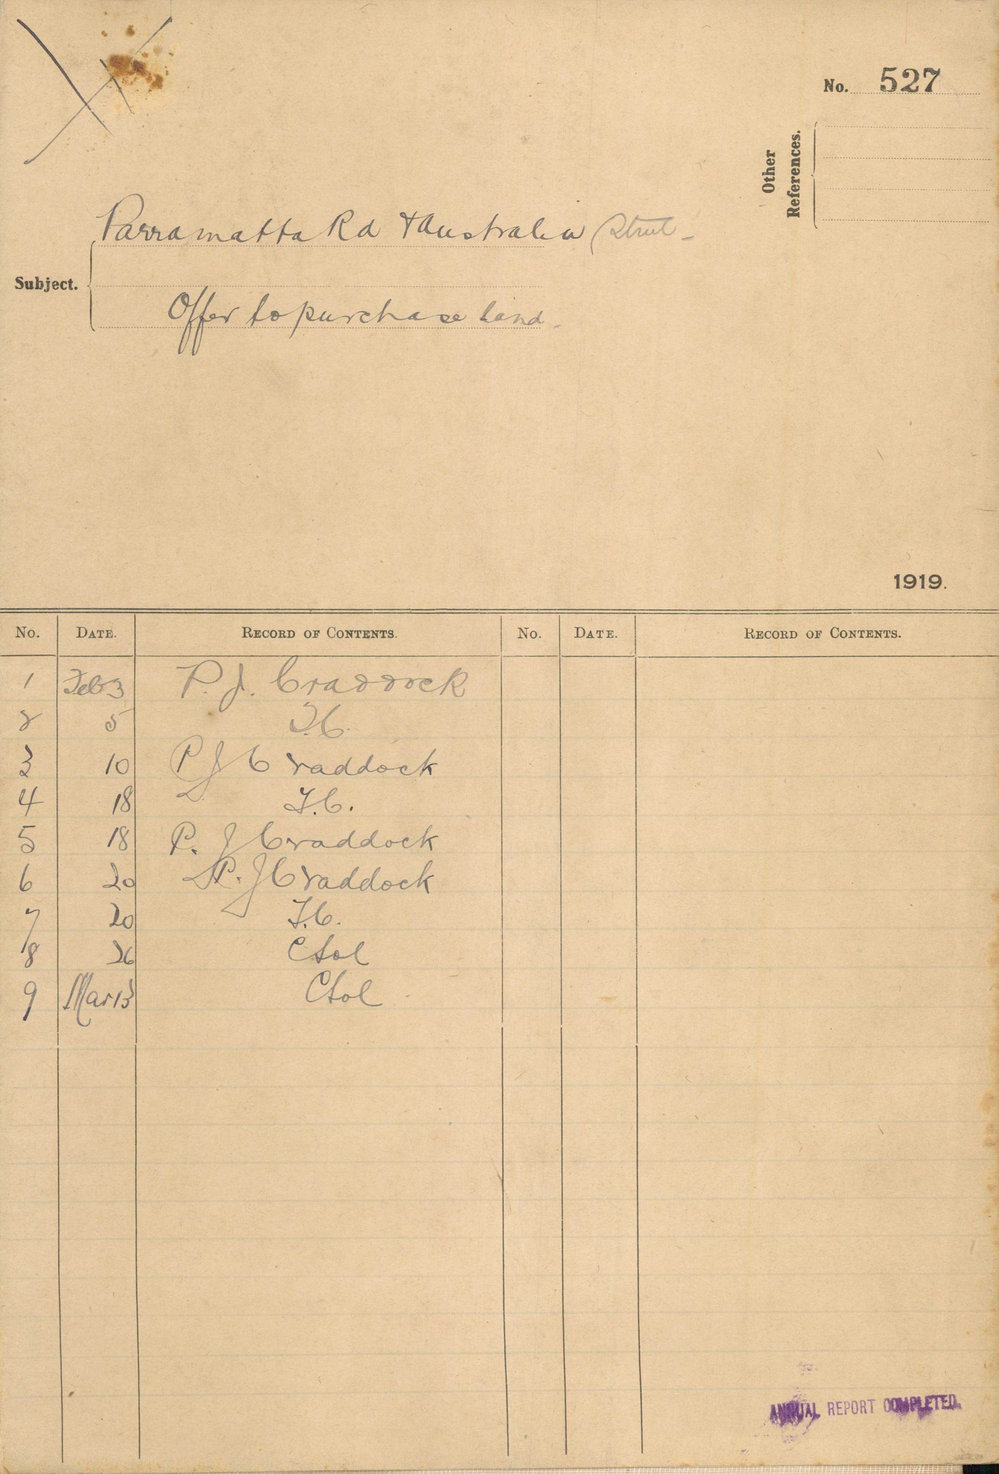 No. 527
Other References.
Parramatta Rd & Australia Street
Subject.
Offer to purchase land.
1919.
No. DATE. RECORD OF CONTENTS. No. DATE. RECORD OF CONTENTS.
1 Feb 3 P. J. Craddock
2 5 T.C.
3 10 P J Craddock
4 18 T.C.
5 18 P. J Craddock
6 20 P. J Craddock
7 20 T.C.
8 26 CSol
9 Mar 13 CSol
ANNUAL REPORT COMPLETED.